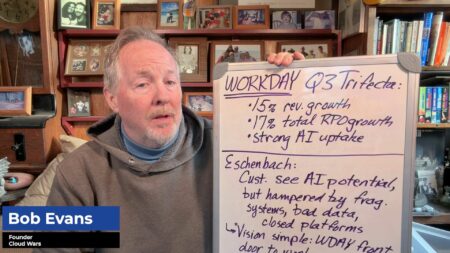 WORKDAY Q3 Trifecta:
• 15% rev. growth
• 17% total RPO growth
• strong AI uptake
Eschenbach:
Cust. see AI potential,
but hampered by frag.
systems, bad data,
closed platforms
↳ Vision simple: WDAY front
door to
Bob Evans
Founder
Cloud Wars